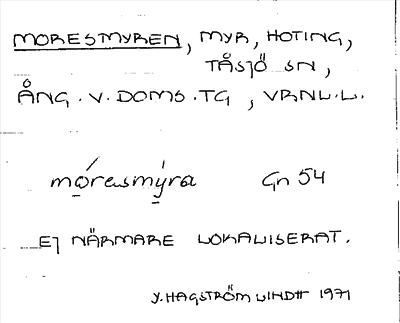 MORESMYREN, MYR, HOTING,
TÅSJÖ SN,
ÅNG. V. DOMS. TG, VRNL.L.
móresmýra Gn 54
EJ NÄRMARE LOKALISERAT.
Y. HAGSTRÖM LINDH 1971